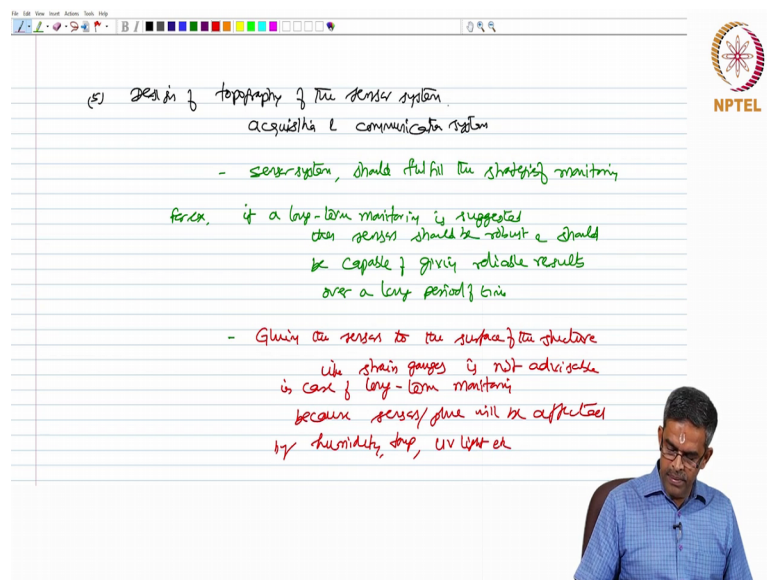 File Edit View Insert Actions Tools Help
B I
NPTEL
(5) Design of topography of the sensor system.
acquisition & communication system
- sensor system, should fulfill the strategies of monitoring
for ex, if a long-term monitoring is suggested
then sensors should be robust & should
be capable of giving reliable results
over a long period of time
- Gluing the sensors to the surface of the structure
like strain gauges is not advisable
in case of long-term monitoring
because sensors/glue will be affected
by humidity, temp, UV light etc